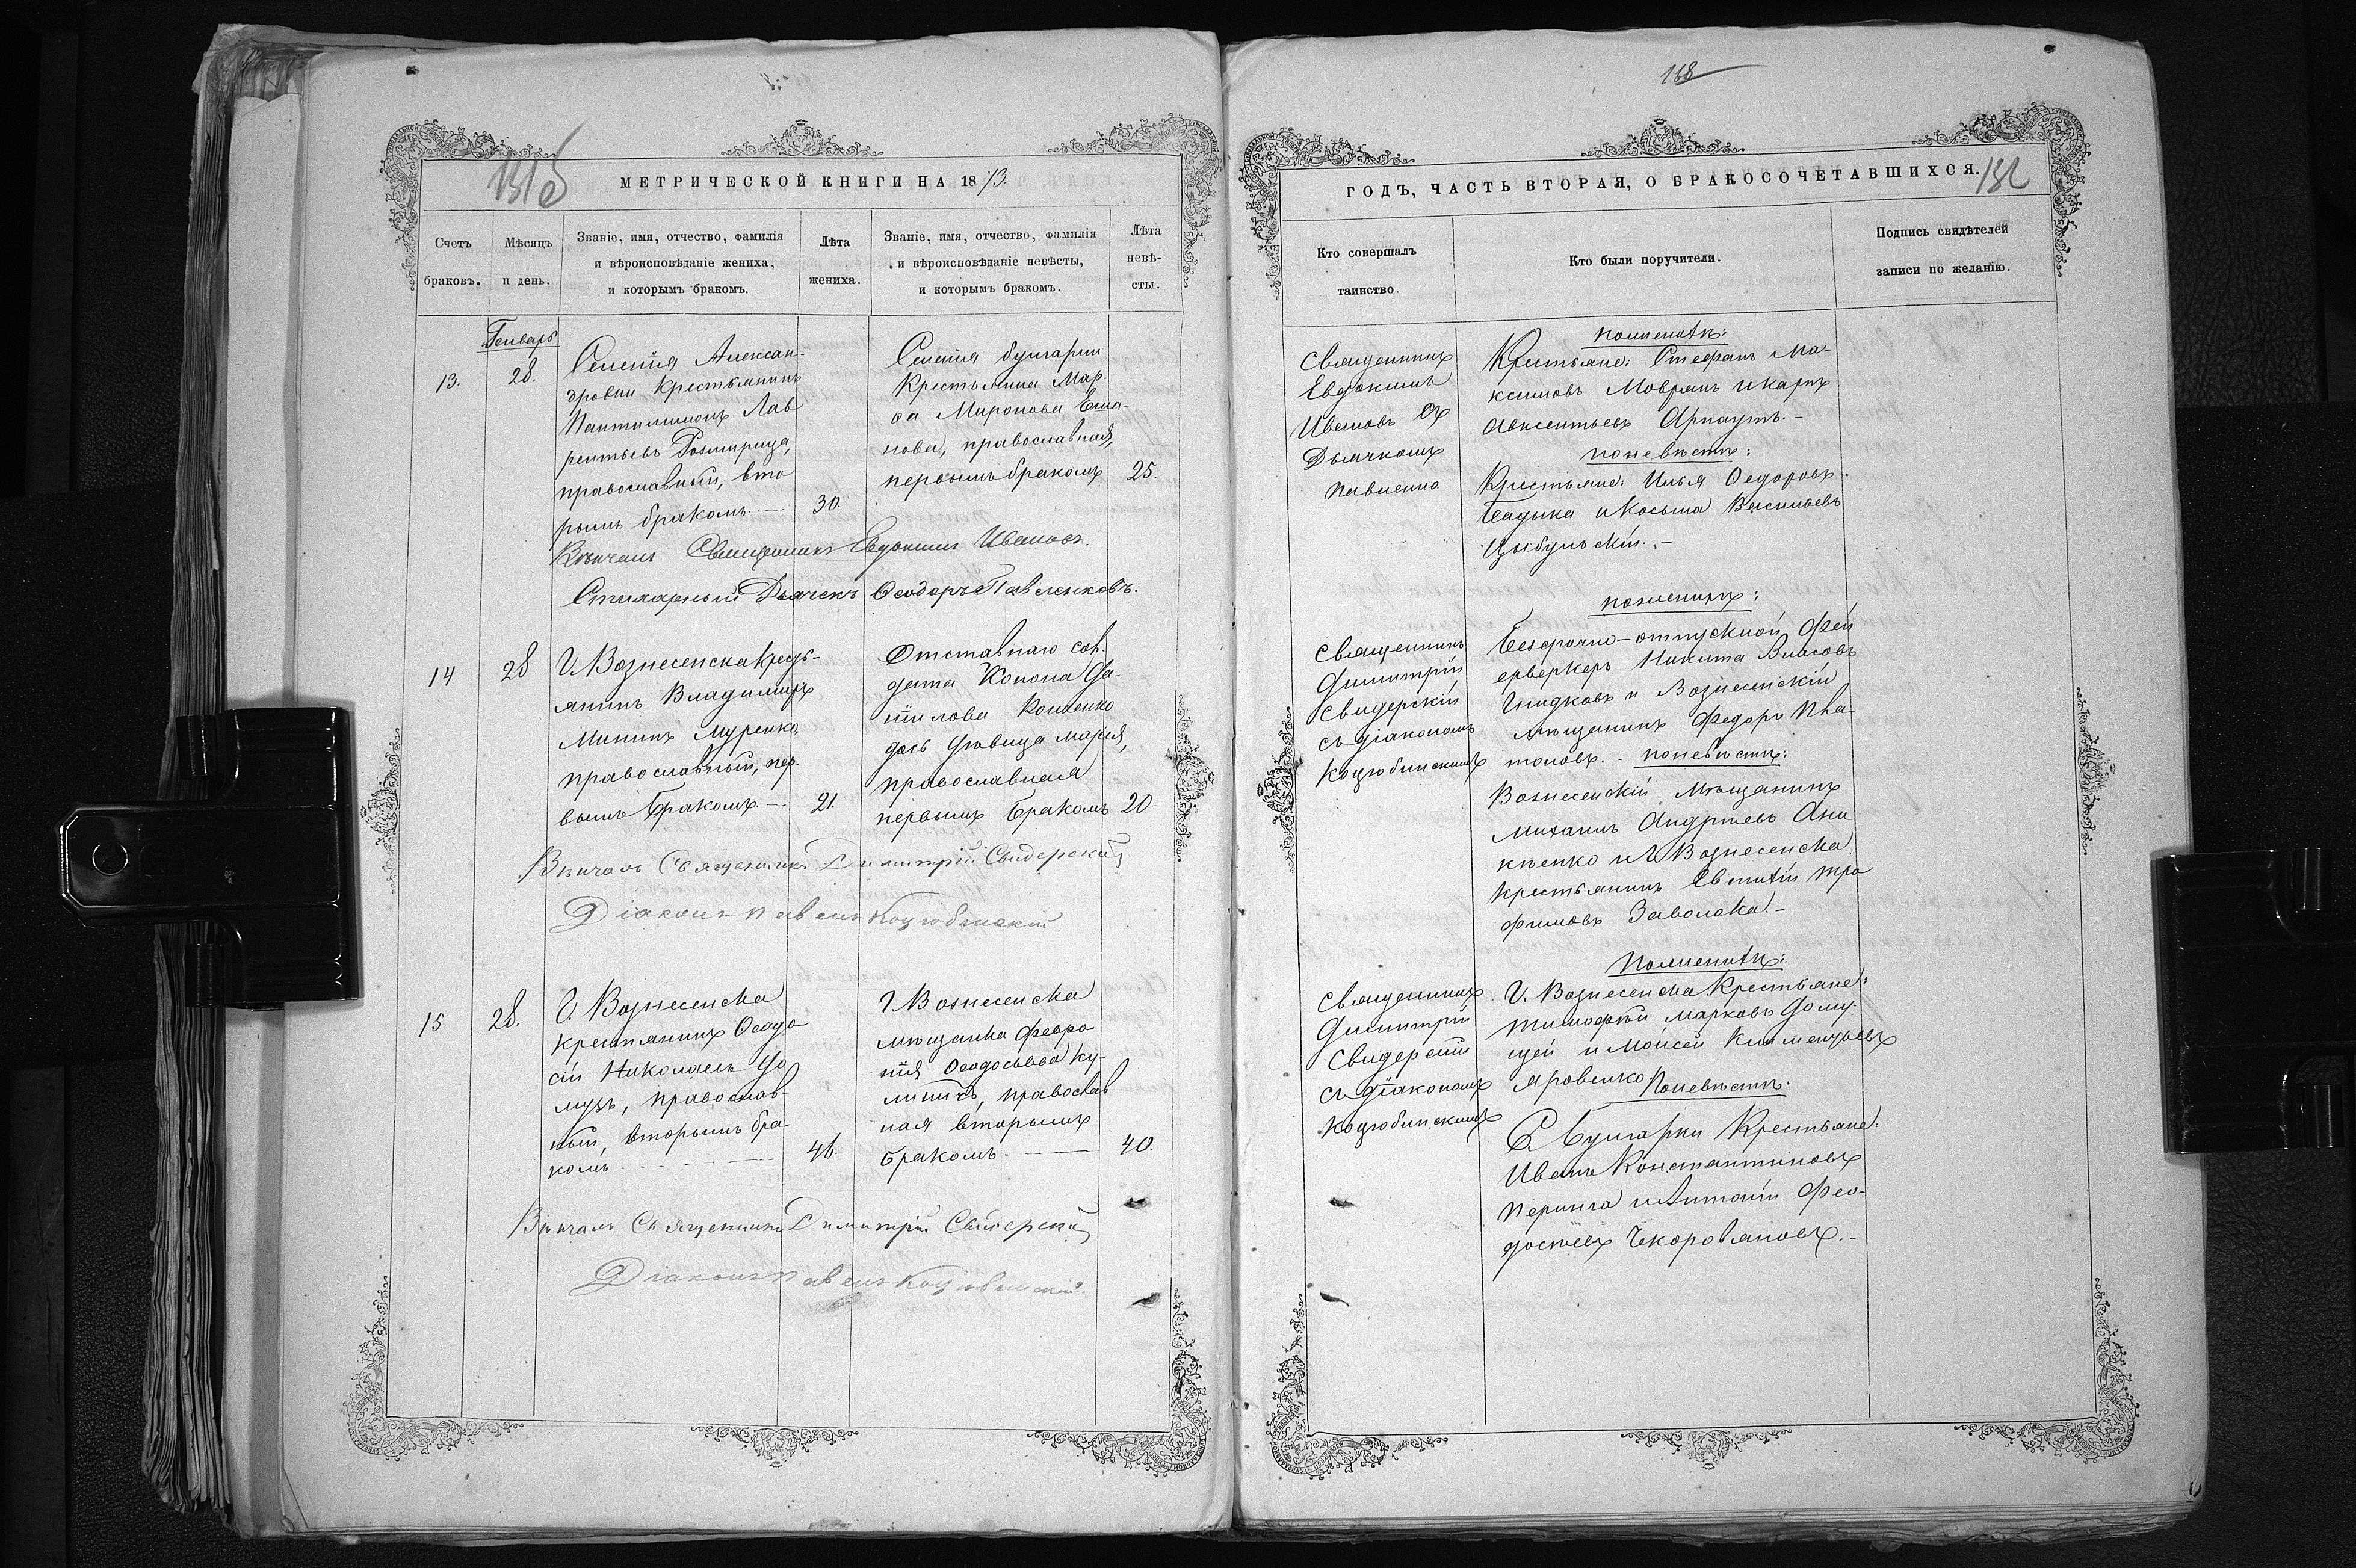 168
131 об
МЕТРИЧЕСКОЙ КНИГИ НА 1873.
Счетъ браковъ.
Мѣсяцъ и день.
Званіе, имя, отчество, фамилія
и вѣроисповѣданіе жениха,
и которымъ бракомъ.
Лѣта
жениха.
Званіе, имя, отчество, фамилія
и вѣроисповѣданіе невѣсты,
и которымъ бракомъ.
Лѣта
невѣ-
сты.
Генварь
13.
28.
Селенія Алексан-
дровки крестьянинъ
Пантилимонъ Лав
рентьевъ
православный, вто
рымъ бракомъ
30.
Селенія Булгарки
Крестьянка Мар-
ѳа Миронова
нова, православная,
первымъ бракомъ
25.
Вѣнчалъ Священникъ Евдокимъ Ивановъ.
Стихарный Дьячекъ Ѳеодоръ Павленковъ.
14
28
Г. Вознесенска крест-
янинъ Владимиръ
Мининъ Муренко,
православный, пер-
вымъ бракомъ. —
21.
Отставнаго сол-
дата Конона Да-
ніилова
дочь дѣвица Марія,
православная
первымъ бракомъ
20
Вѣнчалъ Священникъ Димитрій Свидерскій
Діаконъ Павелъ Коцюбинскій
15
28.
Г. Вознесенска
крестьянинъ Ѳеодо
сій Николаевъ До
музъ, православ-
ный, вторымъ бра-
комъ
46.
Г. Вознесенска
мѣщанка Февро
нія Ѳеодосьева Ку-
православ
ная вторымъ
бракомъ
40.
Вѣнчалъ Священникъ Димитрій Свидерскій
Діаконъ Павелъ Коцюбинскій.
ГОДЪ, ЧАСТЬ ВТОРАЯ, О БРАКОСОЧЕТАВШИХСЯ.
132
Кто совершалъ
таинство.
Кто были поручители.
Подпись свидѣтелей
записи по желанію.
Священникъ
Евдокимъ
Ивановъ съ
Дьячкомъ
Павленко
По женихѣ:
Крестьяне: Стефанъ Ма-
ксимовъ Мовранъ и Карпъ
Авксентьевъ Арнаутъ. —
по невѣстѣ:
Крестьяне: Илья Ѳедоровъ
и Косьма Васильевъ
Цыбульскій. —
Священникъ
Димитрій
Свидерскій
съ діакономъ
Коцюбинскимъ
по женихѣ:
Безсрочно-отпускной Фей
ерверкеръ Никита Власовъ
Гнидковъ и Вознесенскій
мѣщанинъ Федоръ Пла-
тоновъ. . по невѣстѣ:
Вознесенскій мѣщанинъ
Михаилъ Андреевъ Ани
кѣенко и Г. Вознесенска
крестьянинъ Евтихій Тро
фимовъ Заволока. —
Священникъ
Димитрій
Свидерскій
съ діакономъ
Коцюбинскимъ
По женихѣ:
Г. Вознесенска Крестьяне:
Тимофѣй Марковъ Дому-
щей и Моисей Климентьевъ
Яровенко по невѣстѣ.
С. Булгарки Крестьяне:
Иванъ Константиновъ
и Антоній Фео-
досіевъ Чекоровановъ. —